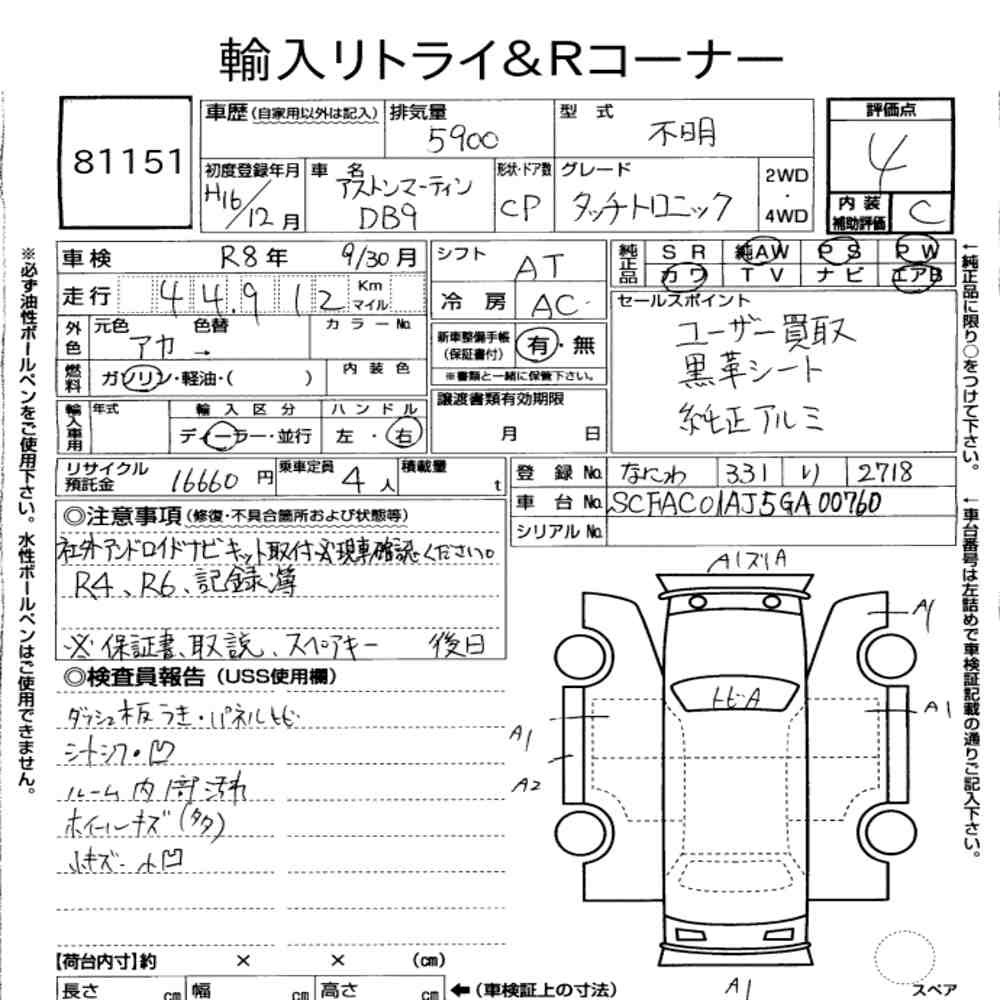 輸入リトライ&Rコーナー
81151
車歴(自家用以外は記入)
排気量
5900
型式
不明
評価点
4
初度登録年月
H16/12月
車名
アストンマーティン
DB9
形状・ドア数
CP
グレード
タッチトロニック
2WD
・
4WD
内装
補助評価
C
車検 R8年 9/30月
シフト
AT
純正品
SR 純AW PS PW
カワ TV ナビ エアB
走行 44,912 Km マイル
冷房 AC
セールスポイント
ユーザー買取
黒革シート
純正アルミ
外色
元色 色替
アカ →
カラーNo.
新車整備手帳
(保証書付)
有・無
※書類と一緒に保管下さい。
燃料
ガソリン・軽油・( )
内装色
譲渡書類有効期限
月 日
輸入車用
年式
輸入区分
ディーラー・並行
ハンドル
左・右
リサイクル
預託金
16660円
乗車定員
4人
積載量
t
登録No. なにわ 331 り 2718
車台No. SCFAC01AJ5GA00760
シリアルNo.
◎注意事項(修復・不具合箇所および状態等)
社外アンドロイドナビキット取付※現車確認ください。
R4、R6、記録簿
※保証書、取説、スペアキー 後日
◎検査員報告(USS使用欄)
ダッシュ板うき・パネルトビ
シートシワ・凹
ルーム内部汚れ
ホイールキズ(タタ)
小キズ・小凹
A1ズリA
A1
トビA
A1
A1
A2
A1
【荷台内寸】約 × × (cm)
長さ cm 幅 cm 高さ cm
←(車検証上の寸法)
スペア
※必ず油性ボールペンをご使用下さい。水性ボールペンはご使用できません。
←純正品に限り○をつけて下さい。
←車台番号は左詰めで車検証記載の通りご記入下さい。